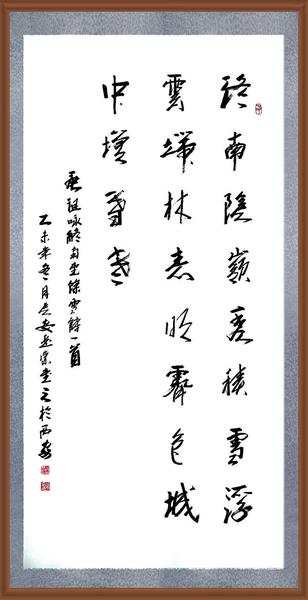 終南陰嶺秀積雪浮
雲端林表明霽色城
中增暮寒
祖詠終南望餘雪詩一首
乙未年月長安堂主於西安